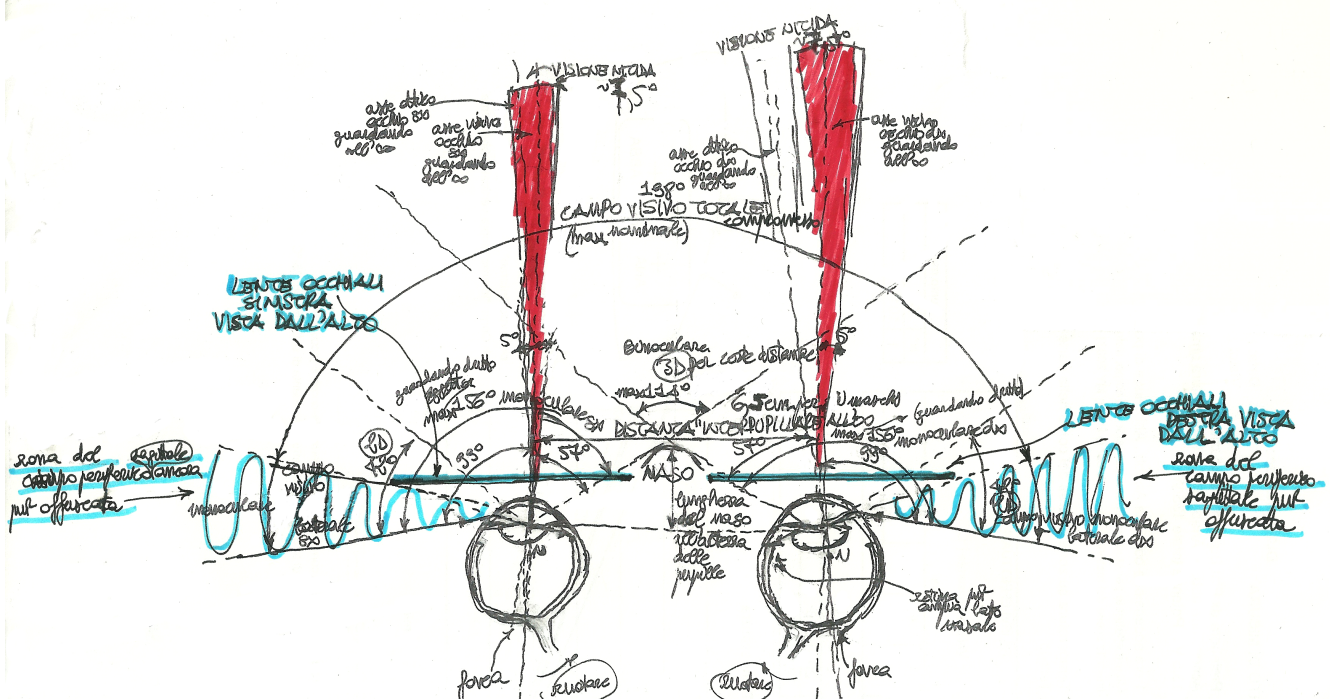 VISIONE NITIDA
VISIONE NITIDA
5°
5°
asse ottico
occhio sx
guardando
all'∞
asse visivo
occhio
sx
guardando
all'∞
asse visivo
occhio dx
guardando
all'∞
asse ottico
occhio dx
guardando
all'∞
198°
CAMPO VISIVO TOTALE
(max nominale)
LENTE OCCHIALI
SINISTRA
VISTA DALL'ALTO
5°
5°
binoculare
3D per cose distante
max 114°
guardando dritto
max 156° monoculare sx
6,5 cm per il maschio
DISTANZA INTERPUPILLARE
guardando dritto
max 156°
monoculare dx
LENTE OCCHIALI
DESTRA VISTA
DALL'ALTO
99°
57°
57°
99°
NASO
zona del sagittale
campo periferico
più offuscata
monoculare
laterale
sx
zona del
campo periferico
sagittale più
offuscata
campo visivo monoculare
laterale dx
lunghezza
del naso
all'altezza
delle
pupille
N
N
retina più
ampia lato
nasale
fovea
fovea